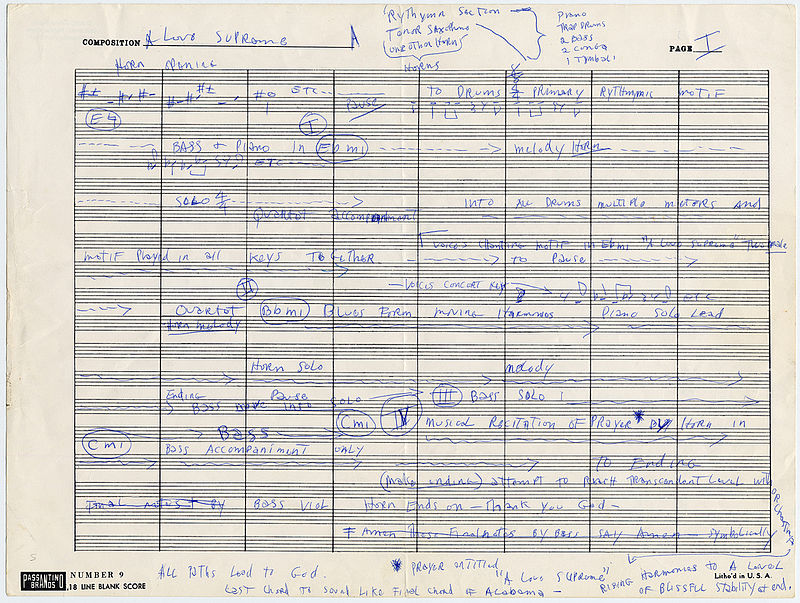 "Rythym Section
Tenor Saxophone
(one other Horn)
Horns
Piano
Trap Drums
2 Bass
2 Conga
1 Timbali
COMPOSITION A Love Supreme
PAGE I
Horn opening
ETC
PAUSE
TO DRUMS 4/4 PRIMARY RYTHYMIC MOTIF
E4
I
BASS + PIANO IN Ebmi melody Horn
ETC
SOLO 4/4
Quartot Accompaniment
INTO ALL DRUMS MULTIPLE METERS AND
Voices Chanting motif in Ebmi "A Love Supreme"
motif Played in all KEYS TOGETHER TO PAUSE
II
VOICES CONCERT KEY ETC
Quartot Bbmi Blues Form moving Harmonies Piano Solo Lead
Horn melody
HORN SOLO melody
Ending Pause
BASS move INTO SOLO III BASS SOLO
BASS Cmi IV MUSICAL RECITATION OF PRAYER * BY HORN IN
Cmi BASS ACCOMPANIMENT ONLY
TO Ending
(make ending) attempt to reach transcendent level with
OR CHESTRA
Final notes BY BASS VIOL Horn Ends on - Thank you God -
Amen These Final notes BY BASS SAY Amen - symbolically
PASSANTINO BRANDS
NUMBER 9
18 LINE BLANK SCORE
Litho'd in U. S. A.
ALL paths Lead to God.
* PRAYER entitled
"A Love SUPREME"
RISING HARMONIES to A Level
OF BLISSFUL STABILITY at end.
Last chord to sound like Final chord of Alabama -